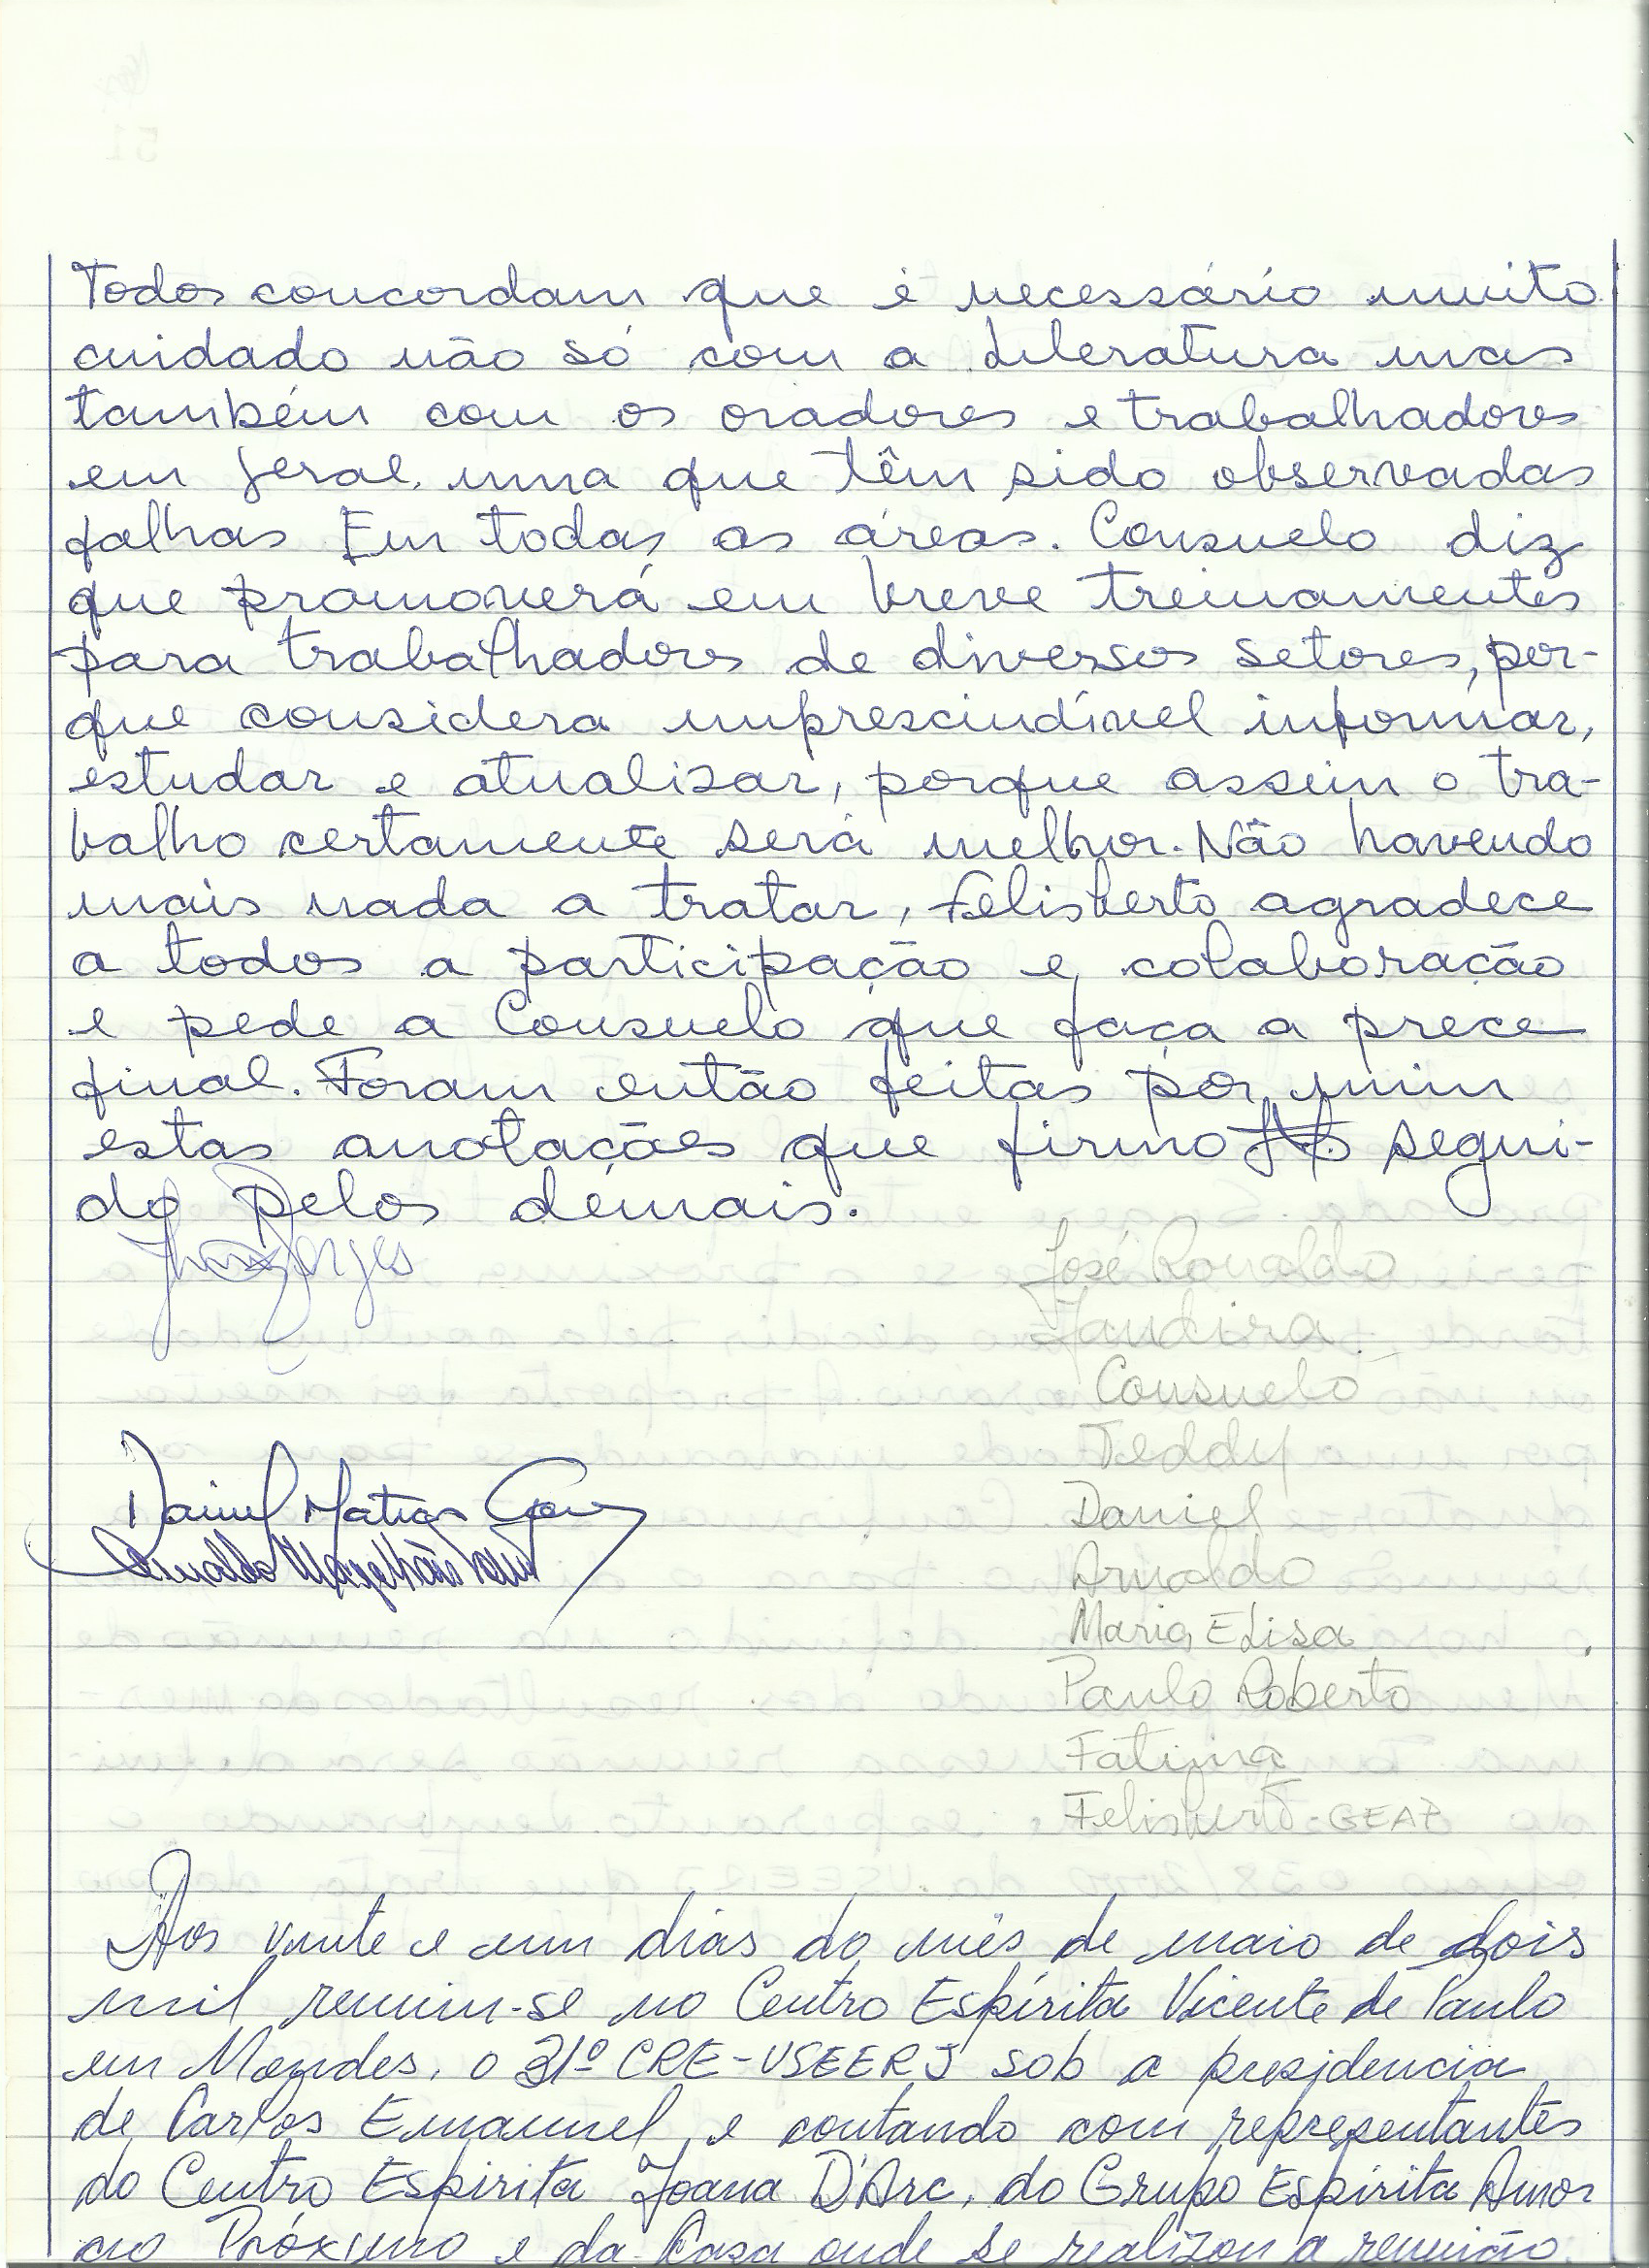 Todos concordam que é necessário muito
cuidado não só com a Literatura mas
também com os oradores e trabalhadores
em geral, uma que têm sido observadas
falhas Em todas as áreas. Consuelo diz
que promoverá em breve treinamentos
para trabalhadores de diversos setores, por-
que considera imprescindível informar,
estudar e atualizar, porque assim o tra-
balho certamente será melhor. Não havendo
mais nada a tratar, Felisberto agradece
a todos a participação e colaboração
e pede a Consuelo que faça a prece
final. Foram então feitas por mim
estas anotações que firmo segui-
do pelos demais.
José Ronaldo
Jandira
Consuelo
Teddy
Daniel
Arnaldo
Maria Elisa
Paulo Roberto
Fatima
Felisberto - GEAP
Daniel Matias
Arnaldo Magalhães
Aos vinte e um dias do mês de maio de dois
mil reuniu-se no Centro Espírita Vicente de Paulo
em Mendes, o 31º CRE-USEERJ sob a presidencia
de Carlos Emannuel, e contando com representantes
do Centro Espírita Joana D'Arc, do Grupo Espírita Amor
ao Próximo e da Casa onde se realizou a reunião